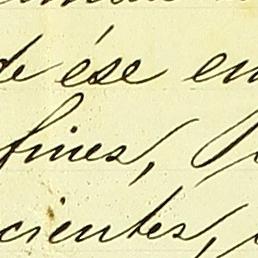 de ése en
fines,
cientes,